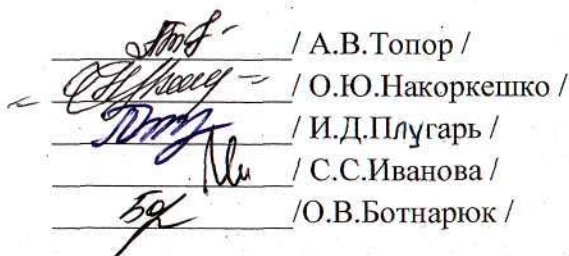 / А.В.Топор /
/ О.Ю.Накоркешко /
/ И.Д.Плугарь /
/ С.С.Иванова /
/О.В.Ботнарюк /